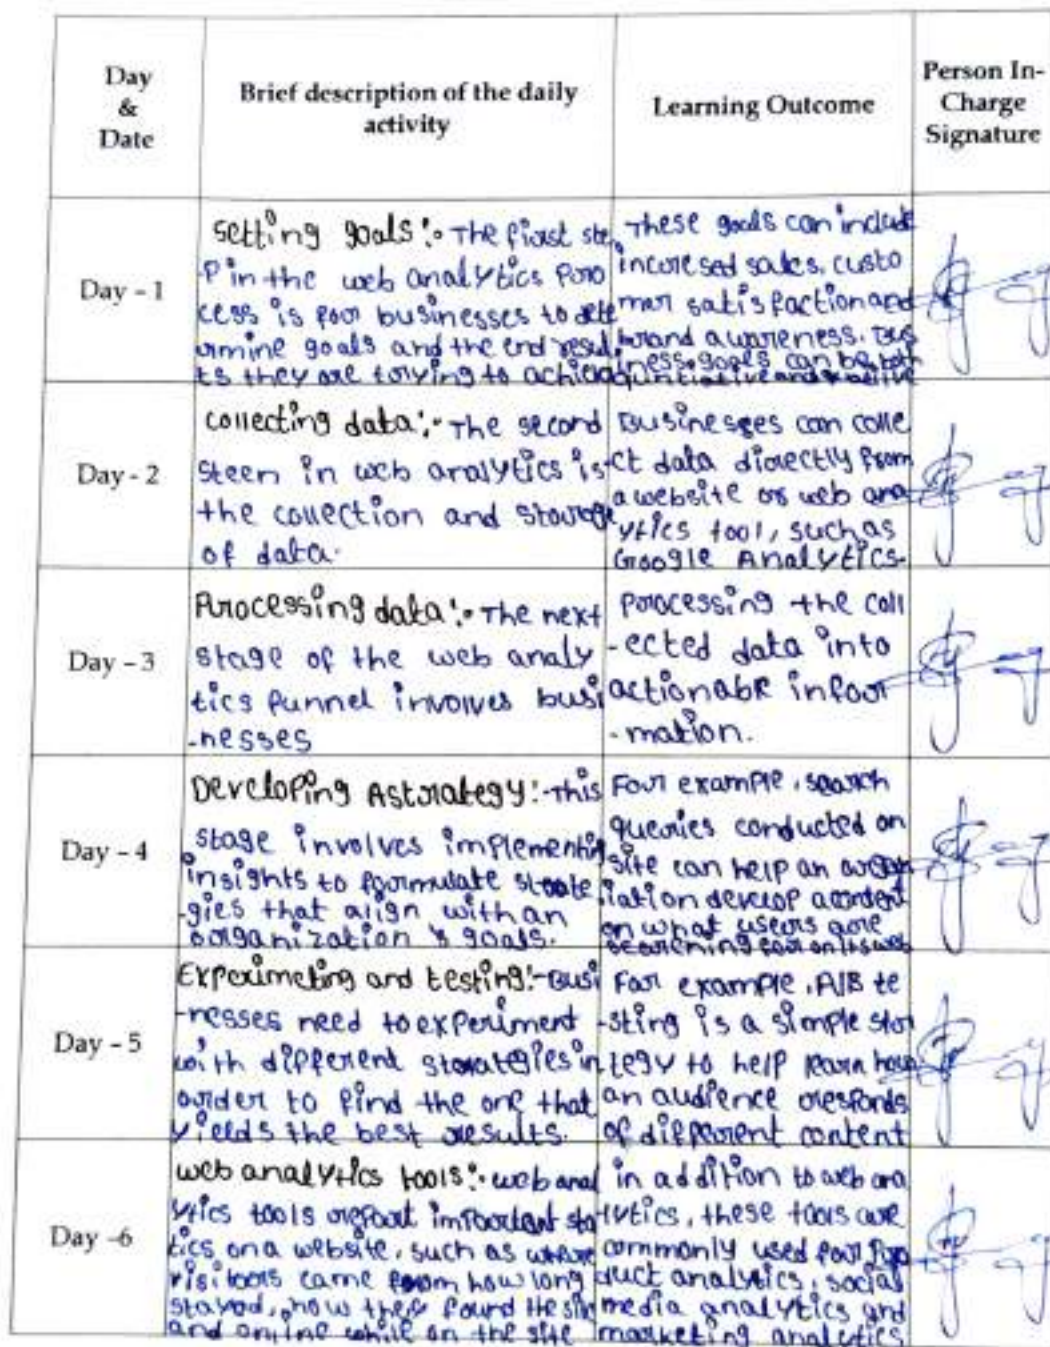 Day
&
Date
Brief description of the daily
activity
Learning Outcome
Person In-
Charge
Signature
Day - 1
Setting goals :- The first ste
p in the web analytics pro
cess is for businesses to dete
rmine goals and the end resul
ts they are trying to achieve
These goals can include
incoresed sales, custo
mer satisfaction and
brand awareness. Bus
iness goals can be both
Day - 2
Collecting data :- The second
steen in web analytics is
the collection and storage
of data.
Businesses can colle
ct data directly from
a website or web ana
lytics tool, such as
Google Analytics.
Day - 3
Processing data :- The next
stage of the web analy
tics funnel involves busi
-nesses
Processing the coll
-ected data into
actionable infor
-mation.
Day - 4
Developing Astrategy :- This
stage involves implementing
insights to formulate strate
-gies that align with an
organization's goals.
For example, search
queries conducted on
site can help an organ
iation develop acontent
on what users are
searching for on its web
Day - 5
Experimeting and testing :- Busi
-nesses need to experiment
with different strategies in
order to find the one that
yields the best results.
For example, A/B te
-sting is a simple stor
tegy to help learn how
an audience responds
of different content
Day -6
web analytics tools :- web anal
ytics tools report important sta
tics on a website, such as where
visitors came from how long
stayed, how they found the site
and online while on the site
in addition to web ana
lytics, these tools are
commonly used for pro
duct analytics, social
media analytics and
marketing analytics